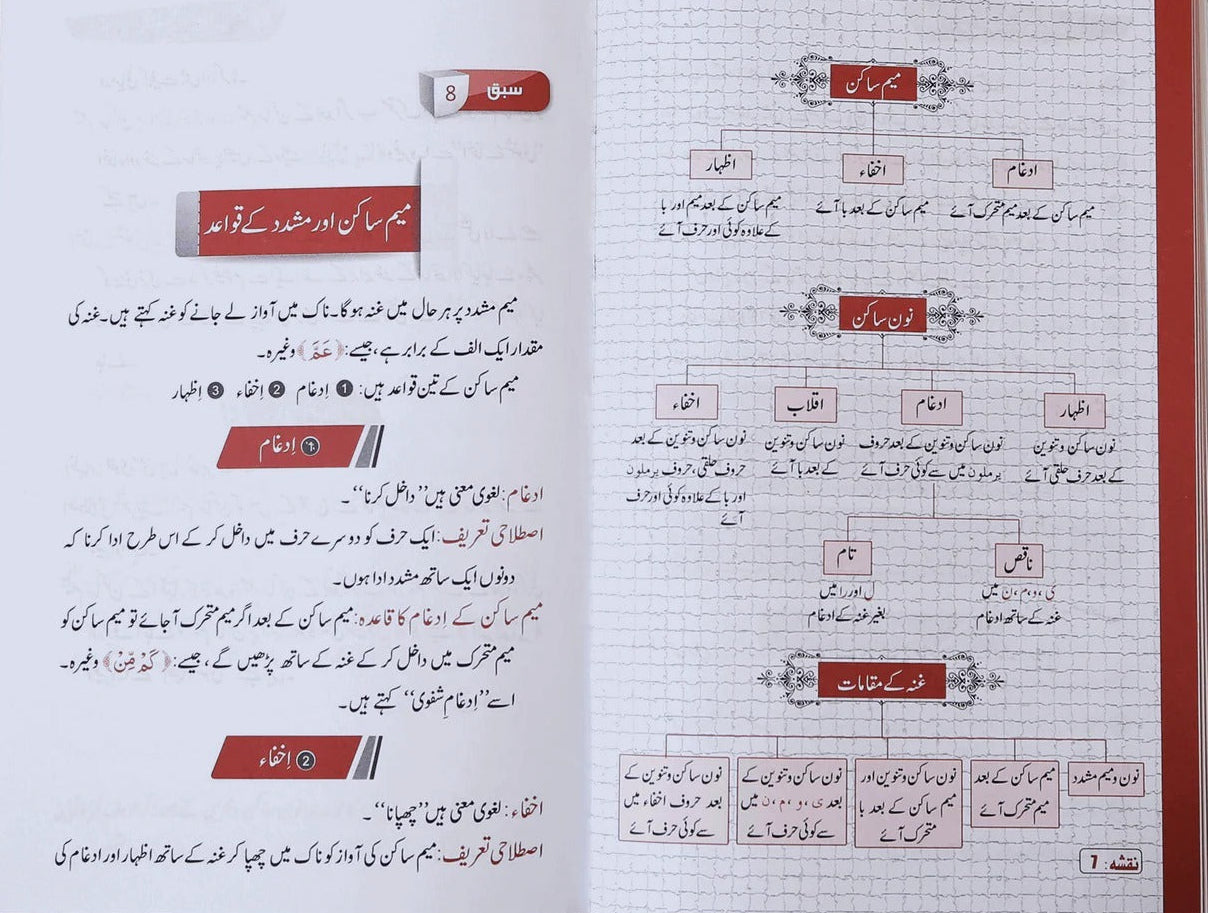 میم ساکن
ادغام
میم ساکن کے بعد میم متحرک آئے
اخفاء
میم ساکن کے بعد با آئے
اظہار
میم ساکن کے بعد میم اور با
کے علاوہ کوئی اور حرف آئے
نون ساکن
اظہار
نون ساکن و تنوین
کے بعد حرف حلقی آئے
ادغام
نون ساکن و تنوین کے بعد حروف
یرملون میں سے کوئی حرف آئے
اقلاب
نون ساکن و تنوین
کے بعد با آئے
اخفاء
نون ساکن و تنوین کے بعد
حروف حلقی، حروف یرملون
اور با کے علاوہ کوئی اور حرف
آئے
ناقص
ی، و، م، ن میں
غنہ کے ساتھ ادغام
تام
ل اور را میں
بغیر غنہ کے ادغام
غنہ کے مقامات
نون و میم مشدد
میم ساکن کے بعد
میم متحرک آئے
نون ساکن و تنوین اور
میم ساکن کے بعد با
متحرک آئے
نون ساکن و تنوین کے
بعد ی، و، م، ن میں
سے کوئی حرف آئے
نون ساکن و تنوین کے
بعد حروف اخفاء میں
سے کوئی حرف آئے
نقشہ: 7
سبق 8
میم ساکن اور مشدد کے قواعد
میم مشدد پر ہر حال میں غنہ ہوگا۔ ناک میں آواز لے جانے کو غنہ کہتے ہیں۔ غنہ کی
مقدار ایک الف کے برابر ہے، جیسے: ﴿عَمَّ﴾ وغیرہ۔
میم ساکن کے تین قواعد ہیں: 1 اِدغام 2 اِخفاء 3 اِظہار
1 اِدغام
ادغام: لغوی معنی ہیں ’’داخل کرنا‘‘۔
اصطلاحی تعریف: ایک حرف کو دوسرے حرف میں داخل کر کے اس طرح ادا کرنا کہ
دونوں ایک ساتھ مشدد ادا ہوں۔
میم ساکن کے اِدغام کا قاعدہ: میم ساکن کے بعد اگر میم متحرک آ جائے تو میم ساکن کو
میم متحرک میں داخل کر کے غنہ کے ساتھ پڑھیں گے، جیسے: ﴿كَمْ مِّنْ﴾ وغیرہ۔
اسے ’’اِدغامِ شفوی‘‘ کہتے ہیں۔
2 اِخفاء
اخفاء: لغوی معنی ہیں ’’چھپانا‘‘۔
اصطلاحی تعریف: میم ساکن کی آواز کو ناک میں چھپا کر غنہ کے ساتھ اظہار اور ادغام کی